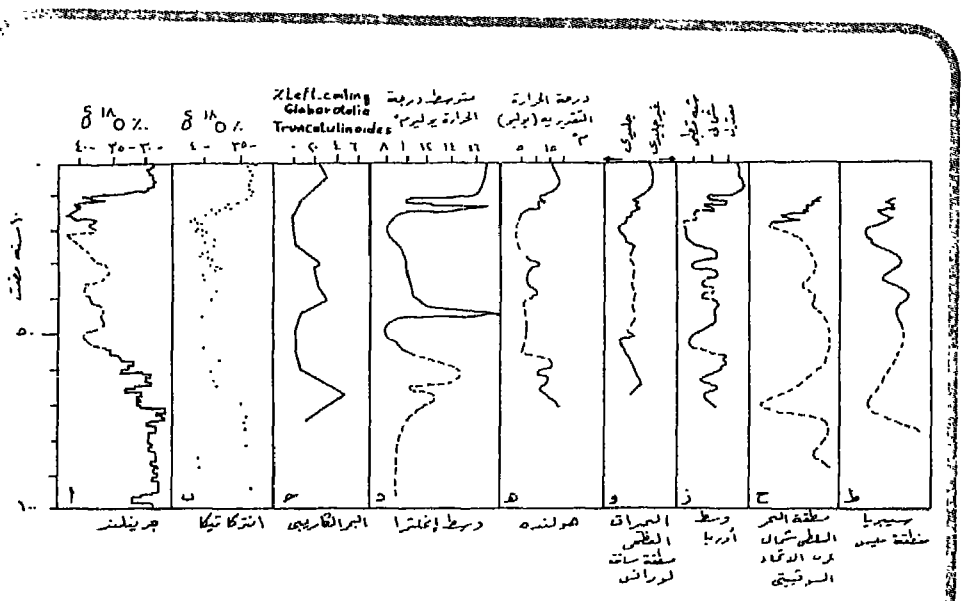 δ ١٨O ٪.
٤٠- ٣٥- ٣٠-
δ ١٨O ٪.
٤٠- ٣٥-
% Left-coiling
Globorotalia
Truncatulinoides
٠ ٢٠ ٤ ٦
متوسط درجة
الحرارة يوليو م°
٨ ١ ١٢ ١٤ ١٦
درجة الحرارة
التقديرية (يوليو)
م°
٥ ١٥
جليدى
غير جليدى
شبه قطبى
شمالى
معتدل
٠
سنة مضت
٥٠
١٠٠
أ
ب
ج
د
ه
و
ز
ح
ط
جرينلند
انتركاتيكا
البحر الكاريبى
وسط إنجلترا
هولنده
البحيرات
العظمى
منطقة سانت
لورانس
وسط
أوربا
منطقة البحر
البلطى شمال
غرب الاتحاد
السوفييتى
سيبيريا
منطقة